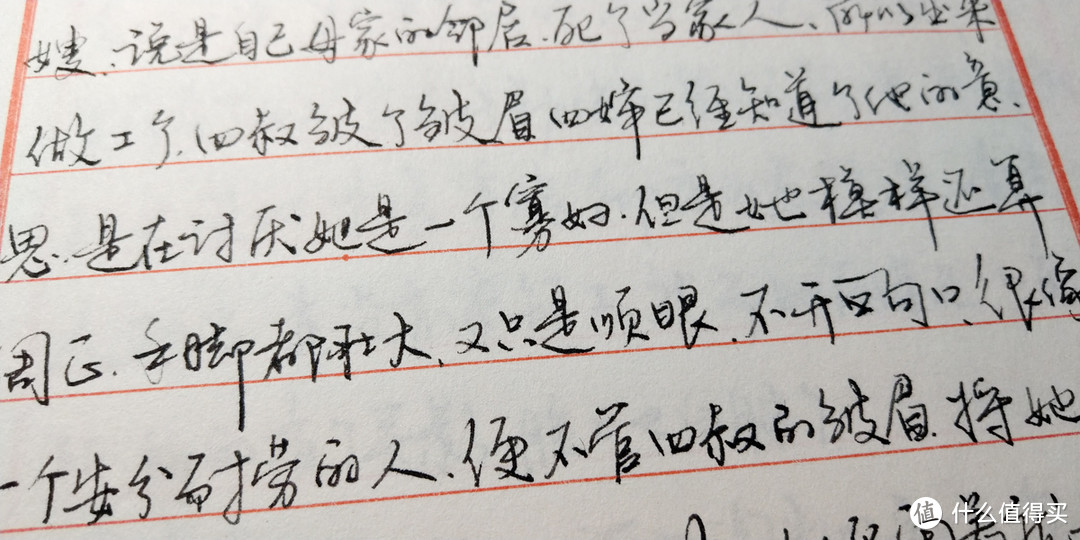 嫂,说是自己母家的邻居,死了当家人,所以出来
做工了,四叔皱了皱眉四婶已经知道了他的意、
思,是在讨厌她是一个寡妇.但是她模样还算
周正,手脚都壮大,又只是顺眼,不开一句口,很像
一个安分耐劳的人,便不管四叔的皱眉,将她
值 什么值得买